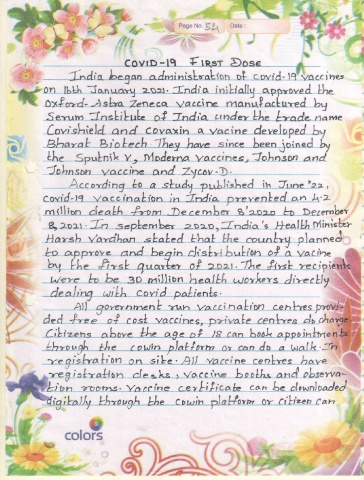 Page No. 52 Date :
COVID-19 FIRST DOSE
India began administration of covid-19 vaccines
on 16th January 2021. India initially approved the
Oxford-Astra Zeneca vaccine manufactured by
Serum Institute of India under the trade name
Covishield and covaxin a vacine developed by
Bharat Biotech. They have since been joined by
the Sputnik V, Moderna vaccines, Johnson and
Johnson vaccine and Zycov-D.
According to a study published in June '22,
covid-19 vaccination in India prevented an 4.2
million death from December 8'2020 to December
8, 2021. In september 2020, India's Health Minister
Harsh Vardhan stated that the country planned
to approve and begin distribution of a vacine
by the first quarter of 2021. The first recipients
were to be 30 million health workers directly
dealing with covid patients.
All government run vaccination centres provi-
ded free of cost vaccines, private centres do charge.
Citizens above the age of 18 can book appointments
through the cowin platform or can do a walk-In
registration on site. All vaccine centres have
registration desks, vaccine booths and observa-
tion rooms. Vaccine certificate can be downloaded
digitally through the cowin platform or citizen can
colors